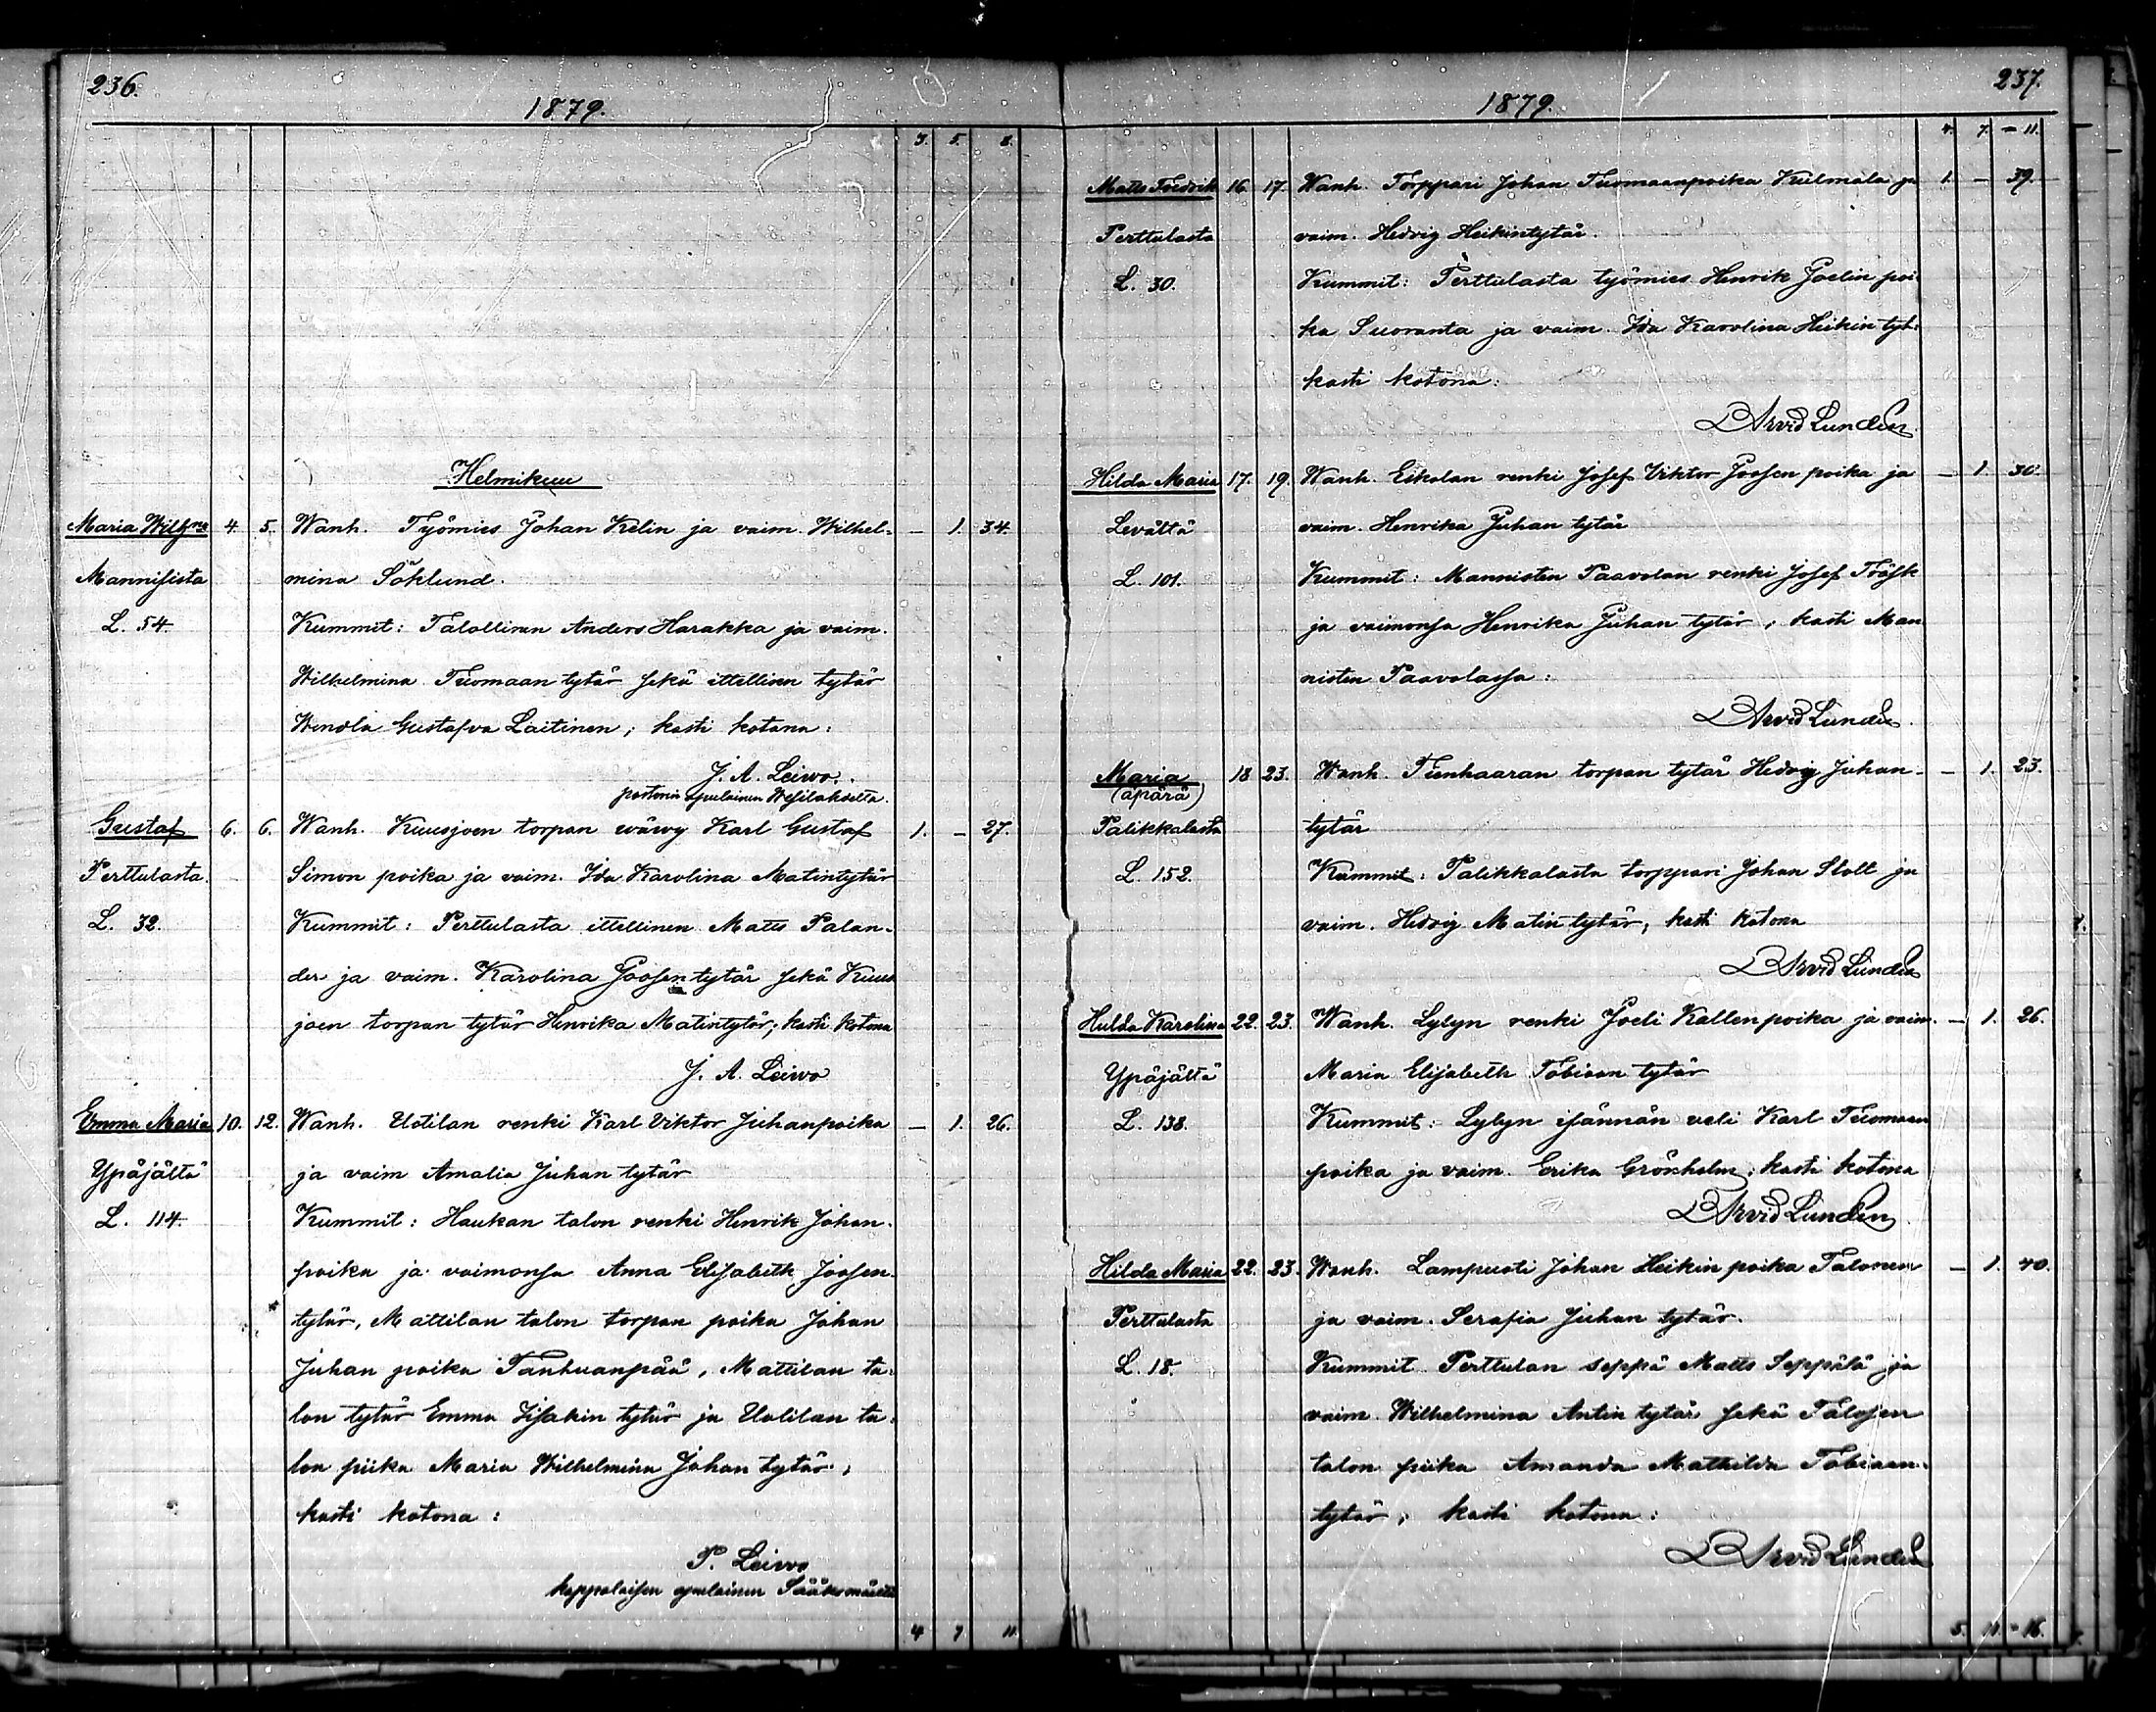 236.
1879.
3. 5. 8.
Helmikuu
Maria Wilh:na 4. 5. Wanh. Työmies Johan Kelin ja vaim. Wilhel- — 1. 34.
Mannisista mina Söklund.
L. 54. Kummit: Talollinen Anders Harakka ja vaim.
Wilhelmina Tuomaan tytär sekä ittellisen tytär
Wendla Gustafva Laitinen; kasti kotona:
J. A. Leivo.
pastorin apulainen Wesilahdelta.
Gustaf 6. 6. Wanh. Kuusjoen torpan wäwy Karl Gustaf 1. — 27.
Perttulasta. Simon poika ja vaim. Ida Karolina Matintytär
L. 32. Kummit: Perttulasta ittellinen Matts Palan-
der ja vaim. Karolina Joosentytär sekä Kuus
joen torpan tytär Henrika Matintytär; kasti kotona
J. A. Leivo
Emma Maria 10. 12. Wanh. Uotilan renki Karl Viktor Juhanpoika — 1. 26.
Ypäjältä ja vaim Amalia Juhan tytär
L. 114. Kummit: Haukan talon renki Henrik Johan-
poika ja vaimonsa Anna Elisabeth Joosen-
tytär, Mattilan talon torpan poika Johan
Juhan poika Tanhuanpää, Mattilan ta-
lon tytär Emma Iisakin tytär ja Uotilan ta-
lon piika Maria Wilhelmina Johan tytär;
kasti kotona:
P. Leivo
kappalaisen apulainen Sääksmäeltä
4 7 11.
237.
1879.
4. 7. — 11.
Matts Fredrik 16. 17. Wanh. Torppari Johan Tuomaanpoika Kulmala ja 1. — 39.
Perttulasta vaim. Hedvig Heikintytär.
L. 30. Kummit: Perttulasta työmies Henrik Joelin poi-
ka Suoranta ja vaim. Ida Karolina Heikin tyt:
kasti kotona:
Arvid Lunden.
Hilda Maria 17. 19. Wanh. Eskolan renki Josef Viktor Joosen poika ja — 1. 30.
Levältä vaim. Henrika Juhan tytär
L. 101. Kummit: Mannisten Paavolan renki Josef Träsk
ja vaimonsa Henrika Juhan tytär; kasti Man
nisten Paavolassa:
Arvid Lunden.
Maria 18 23. Wanh. Tienhaaran torpan tytär Hedvig Juhan- — 1. 23.
(äpärä)
Palikkalasta tytär
L. 152. Kummit: Palikkalasta torppari Johan Stolt ja
vaim. Hedvig Matin tytär; kasti kotona
Arvid Lunden
Hulda Karolina 22. 23. Wanh. Lylyn renki Joeli Kallen poika ja vaim. — 1. 26.
Ypäjältä Maria Elisabeth Tobiaan tytär
L. 138. Kummit: Lylyn isännän veli Karl Tuomaan
poika ja vaim. Erika Grönholm; kasti kotona
Arvid Lunden
Hilda Maria 22. 23. Wanh. Lampuoti Johan Heikin poika Talonen — 1. 40.
Perttulasta ja vaim. Serafia Juhan tytär.
L. 18. Kummit Perttulan seppä Matts Seppälä ja
vaim. Wilhelmina Antin tytär sekä Talosen
talon piika Amanda Mathilda Tobiaan-
tytär; kasti kotona:
Arvid Lunden
5. 11. — 16.